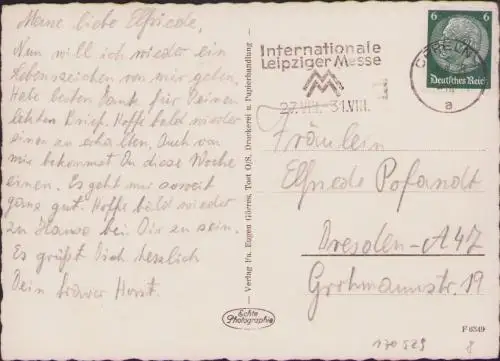 Meine liebe Elfriede,
Nun will ich wieder ein
Lebenszeichen von mir geben.
Habe besten Dank für Deinen
letzten Brief. Hoffe bald wieder
einen zu erhalten. Auch von
mir bekommst Du diese Woche
einen. Es geht mir soweit
ganz gut. Hoffe bald wieder
zu Hause bei Dir zu sein.
Es grüßt Dich herzlich
Dein Horst.
Internationale
Leipziger Messe
MM
27.VIII.-31.VIII.
OPPELN
a
6 6
Deutsches Reich
Fräulein
Elfriede Pofandt
Dresden-A47
19
- Verlag Fa. Eugen Görres, Tost O/S. Druckerei u. Papierhandlung -
Echte
Photographie
F 6349
8